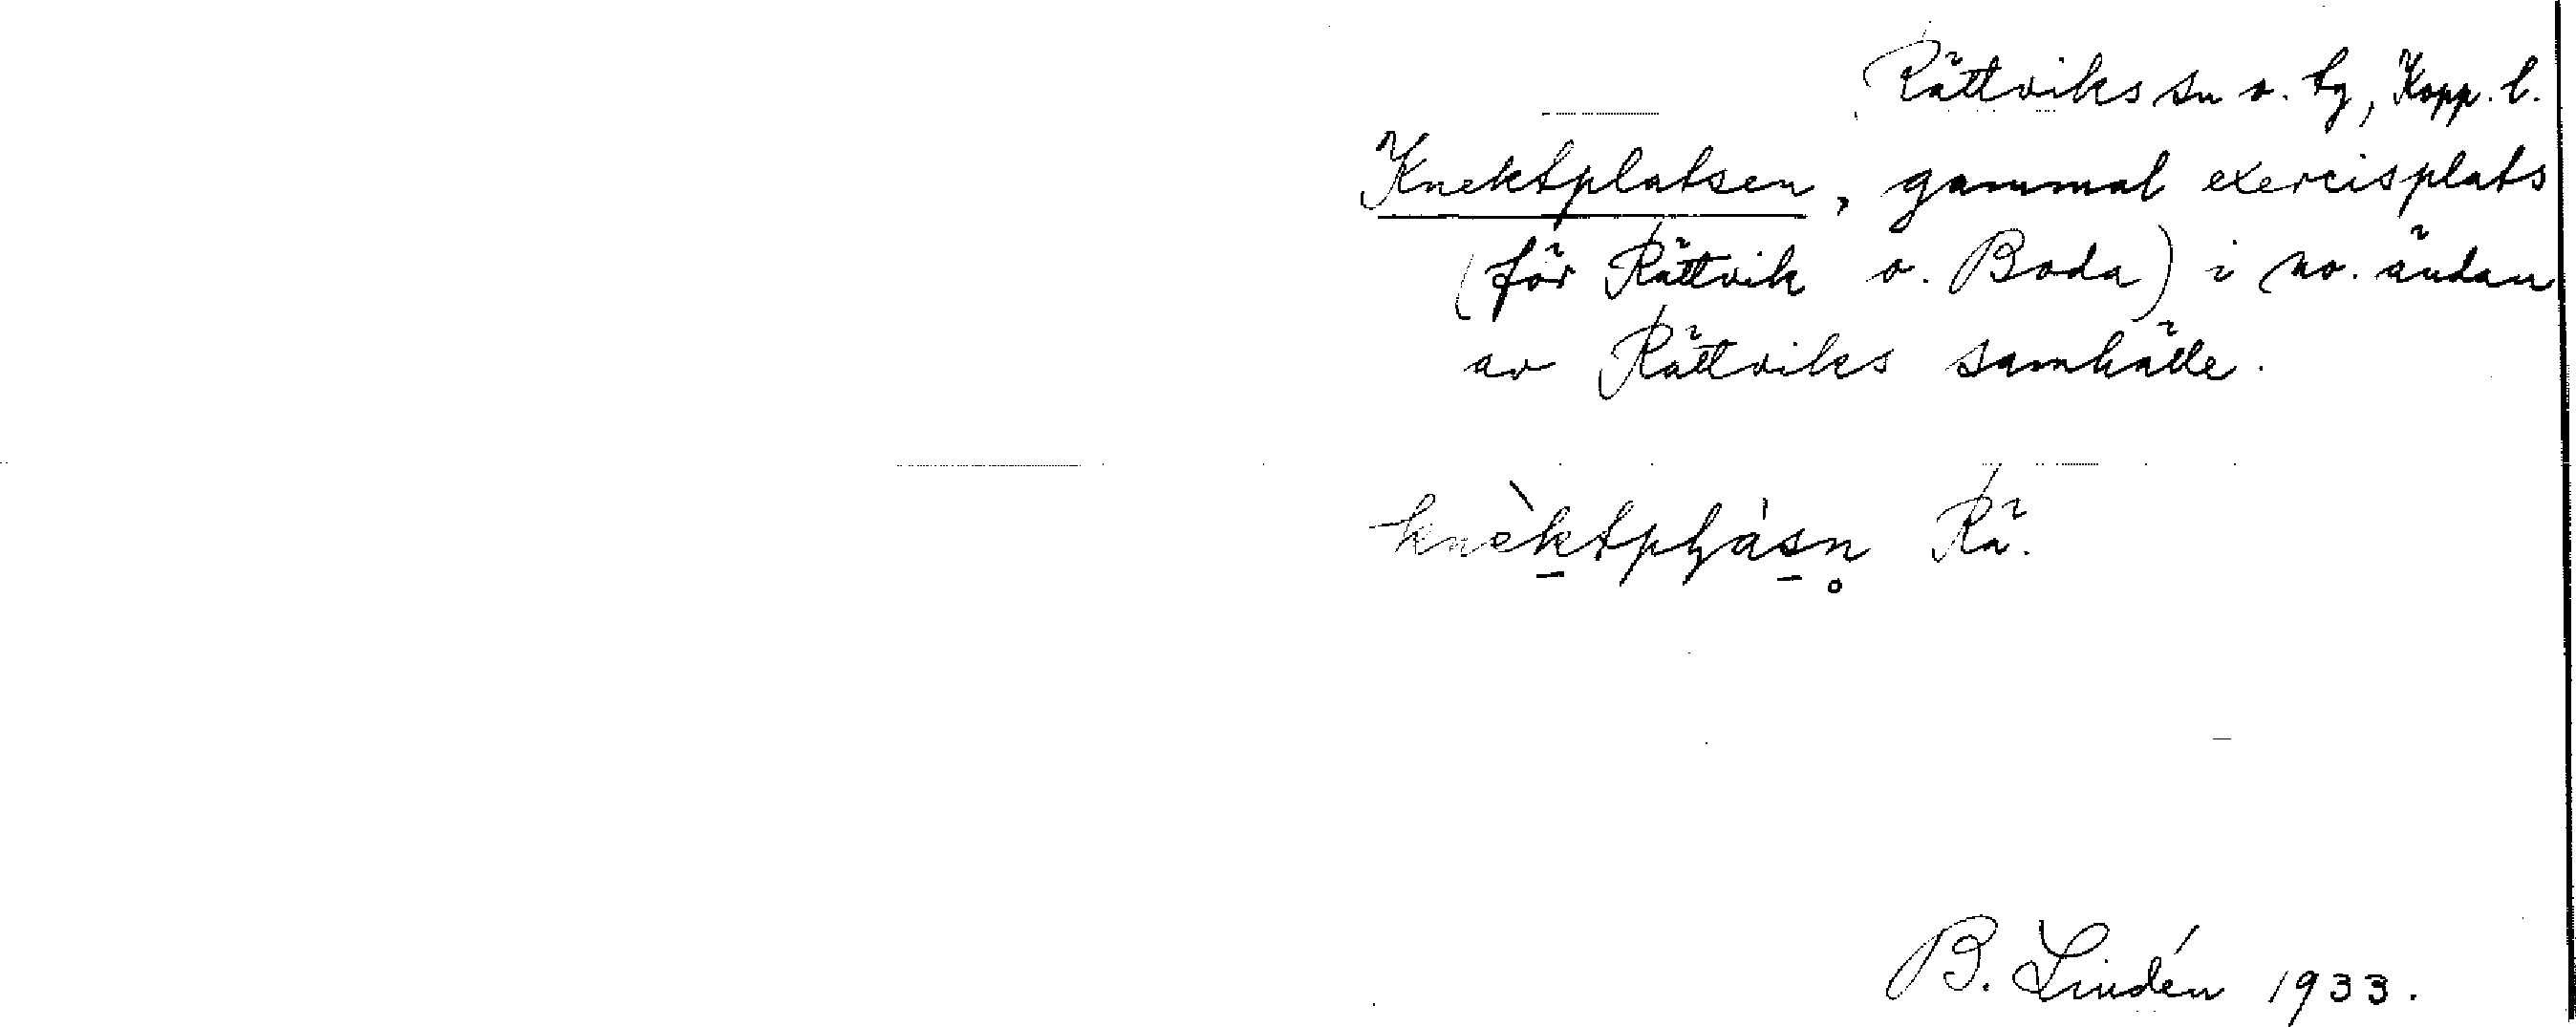 Rättviks sn o. by, Kopp. l.
Knektplatsen, gammal exercisplats
(för Rättvik o. Boda) i no. ändan
av Rättviks samhälle.
knèk̲tpɫás̲n̥ Rä.
B. Lindén 1933.